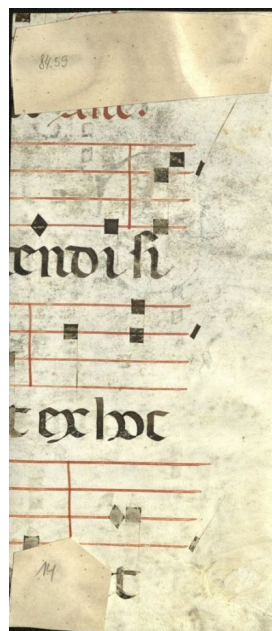 8453
tendi si
t ex hoc
14
t